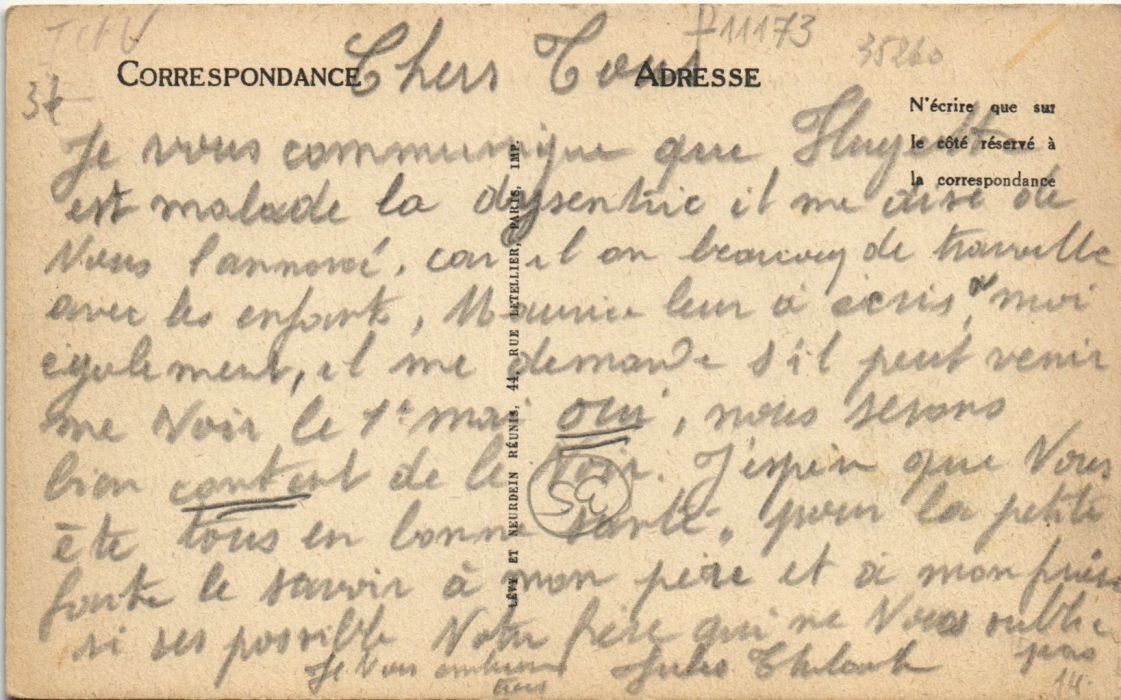 P11173
35260
Chers Tous
CORRESPONDANCE
ADRESSE
N'écrire que sur
le côté réservé à
la correspondance
Je vous communique que Huguette
est malade la dyssentrie il me dise de
Vous l'annoncé, car il on beaucoup de travaille
avec les enfants, Maurice leur a ecris, moi
égalemens, il me demande s'il peut venir
me Voir le 1er mai oui, nous serons
bien content de le Voir. J'espere que Vous
ête tous en bonne santé, pour la petite
faite le savoir à mon père et à mon frère
si ses possible Votre frère qui ne Vous oublie
pas
Je Vous embrasse
tous
Jules
14.
35
LÉVY ET NEURDEIN RÉUNIS, 44, RUE LETELLIER, PARIS, IMP.